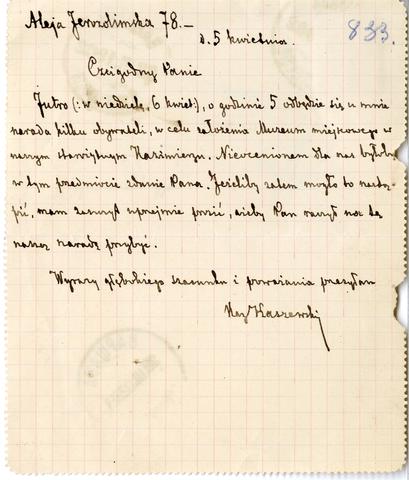 Aleja Jerozolimska 78.—
d. 5 kwietnia.
833.
Czcigodny Panie
Jutro (: w niedzielę, 6 kwiet:), o godzinie 5 odbędzie się u mnie
narada kilku obywateli, w celu założenia Muzeum miejskowego w
naszym starożytnym Kazimierzu. Nieocenionem dla nas byłoby
w tym przedmiocie zdanie Pana. Jeżeliby zatem mogło to nastą-
pić, mam zaszczyt uprzejmie prosić, ażeby Pan raczył na tę
naszą naradę przybyć.
Wyrazy głębokiego szacunku i poważania przesyłam
Kaszewski